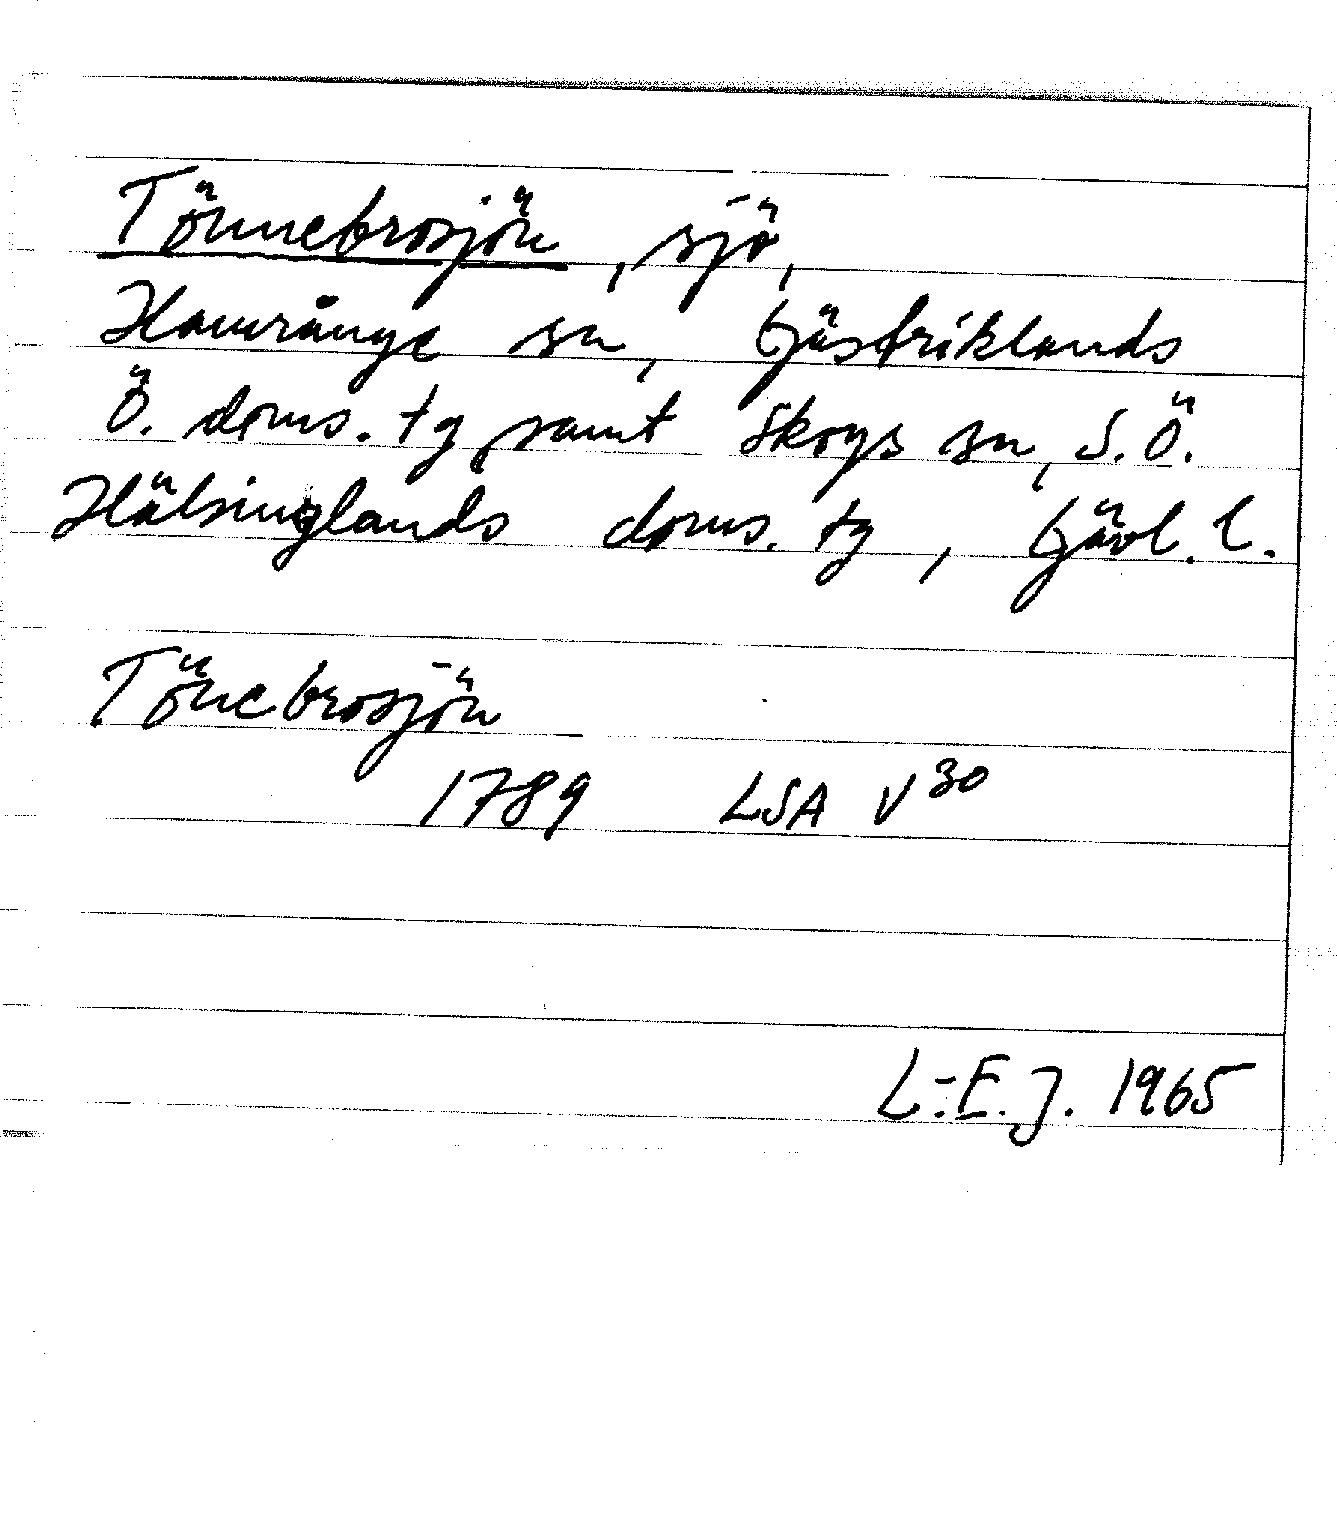 Tönnebrosjön, sjö,
Hamrånge sn, Gästriklands
Ö. doms. tg samt Skogs sn, S.Ö.
Hälsinglands doms. tg, Gävl. l.
Tönebrosjön
1789 LSA V30
L-E.J. 1965